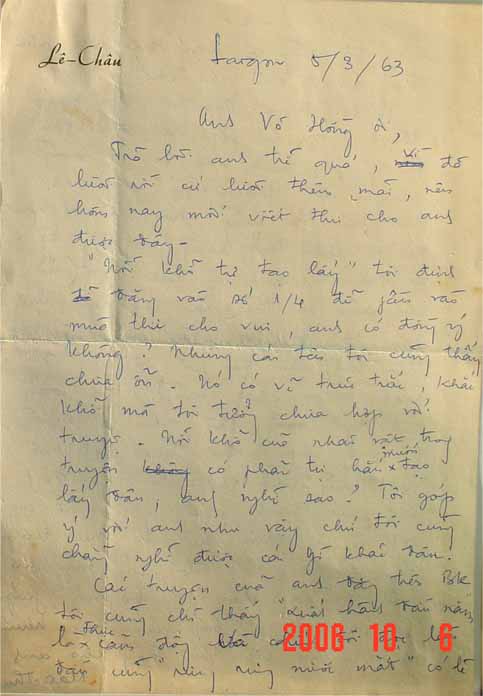 Lê-Châu
Saigon 5/3/63
Anh Võ Hồng ơi,
Trả lời anh trễ quá, vì đã
lười rồi cứ lười thêm mãi, nên
hôm nay mới viết thư cho anh
được đây -
"Nỗi khổ tự tạo lấy" tôi định
đăng vào số 1/4 để gần vào
mùa thi cho vui, anh có đồng ý
không? Nhưng cái tên tôi cũng thấy
chưa ổn. Nó có vẻ trúc trắc, khắc
khổ mà tôi tưởng chưa hợp với
truyện. Nỗi khổ của nhân vật trong
truyện không có phải tự hắn muốn tạo
lấy đâu, anh nghĩ sao? Tôi góp
ý với anh như vậy chứ tôi cũng
chẳng nghĩ được cái gì khác đâu.
Các truyện của anh đăng trên BK
tôi cũng chỉ thấy "đầu năm"
là cảm động tôi đọc
cũng "rưng rưng nước mắt" có lẽ
2006 10 6